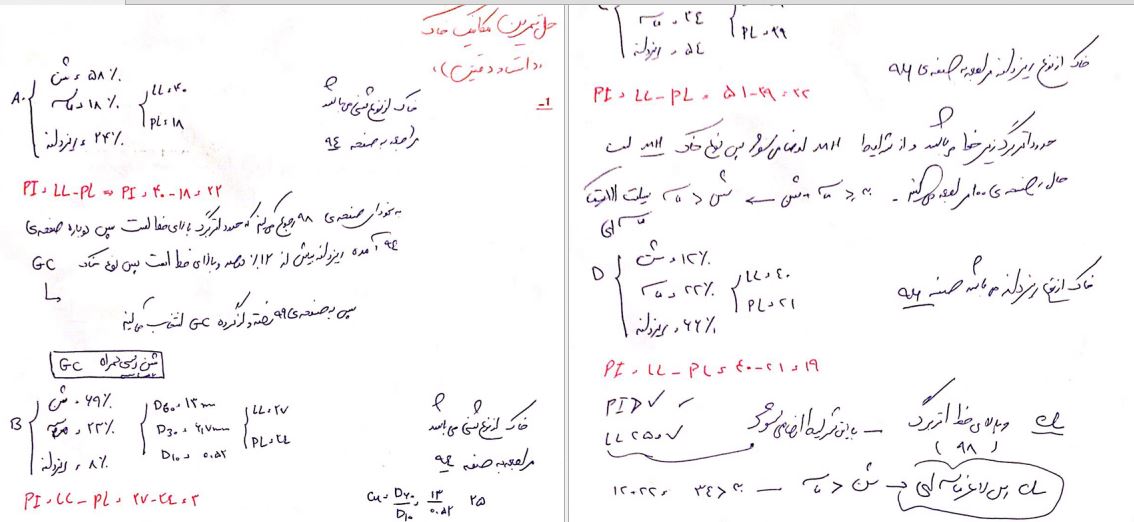 حل تمرین مکانیک خاک
1-
A. شن = ۵۸٪
ماسه = ۱۸٪
ریزدانه = ۲۴٪
LL = ۴۰
PL = ۱۸
خاک از نوع شنی می باشد
مراجعه به صفحه ۹۴
PI = LL - PL ⇒ PI = ۴۰ - ۱۸ = ۲۲
به نمودار صفحه ی ۹۸ رجوع می کنیم که حدود اتربرگ بالای خط A است پس دوباره صفحه ی
۹۴ آمده ریزدانه بیش از ۱۲٪ درصد و بالای خط A است پس نوع خاک GC
پس به صفحه ی ۹۹ رفته و از گروه GC انتخاب می کنیم
GC شن رسی همراه با ماسه
B شن = ۶۹٪
ماسه = ۲۳٪
ریزدانه = ۸٪
D60 = ۱۳ mm
D30 = ۶٫۷ mm
D10 = ۰.۵۲
LL = ۲۷
PL = ۲۴
خاک از نوع شنی می باشد
مراجعه به صفحه ۹۴
PI = LL - PL = ۲۷ - ۲۴ = ۳
Cu = D60 / D10 = ۱۳ / ۰.۵۲ = ۲۵
ماسه = ۳۴
ریزدانه = ۵۴
PL = ۲۹
خاک از نوع ریزدانه مراجعه به صفحه ی ۹۶
PI = LL - PL = ۵۱ - ۲۹ = ۲۲
حدود اتربرگ زیر خط A می باشد و از شرایط MH ارضا می شود پس نوع خاک MH است
حال به صفحه ی ۱۰۰ مراجعه می کنیم
شن < ماسه
D شن = ۱۲٪
ماسه = ۲۲٪
ریزدانه = ۶۶٪
LL = ۴۰
PL = ۲۱
خاک از نوع ریزدانه می باشد صفحه ۹۶
PI = LL - PL = ۴۰ - ۲۱ = ۱۹
PI > ۷ ✓
LL < ۵۰ ✓
با این شرایط ارضا می شود
و بالای خط اتربرگ CL
(۹۸)
۱۲ + ۲۲ = ۳۴
شن < ماسه
CL رس لاغر ماسه ای